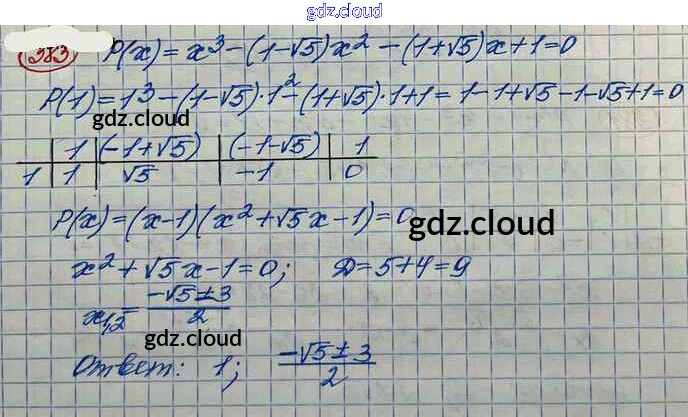 gdz.cloud
383 P(x)=x³-(1-√5)x²-(1+√5)x+1=0
P(1)=1³-(1-√5)·1²-(1+√5)·1+1=1-1+√5-1-√5+1=0
gdz.cloud
1 (-1+√5) (-1-√5) 1
1 1 √5 -1 0
P(x)=(x-1)(x²+√5x-1)=0
gdz.cloud
x²+√5x-1=0; D=5+4=9
x1,2=(-√5±3)/2
gdz.cloud
Ответ: 1; (-√5±3)/2